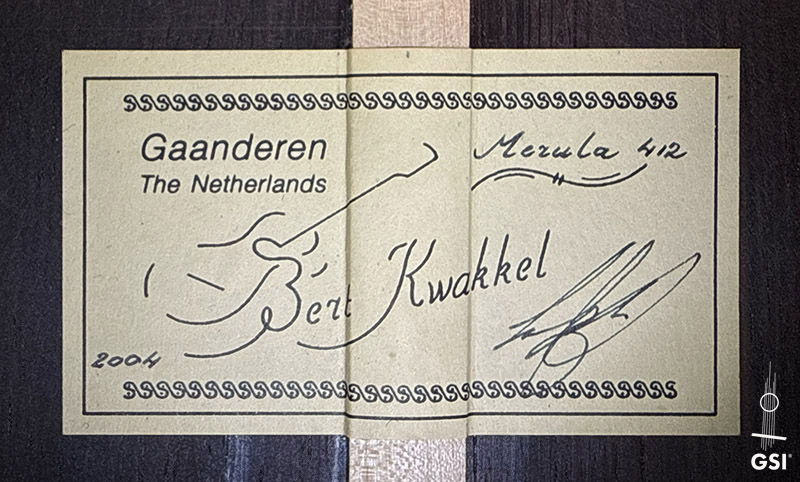 Gaanderen
The Netherlands
Merula 412
Bert Kwakkel
2004
GSI